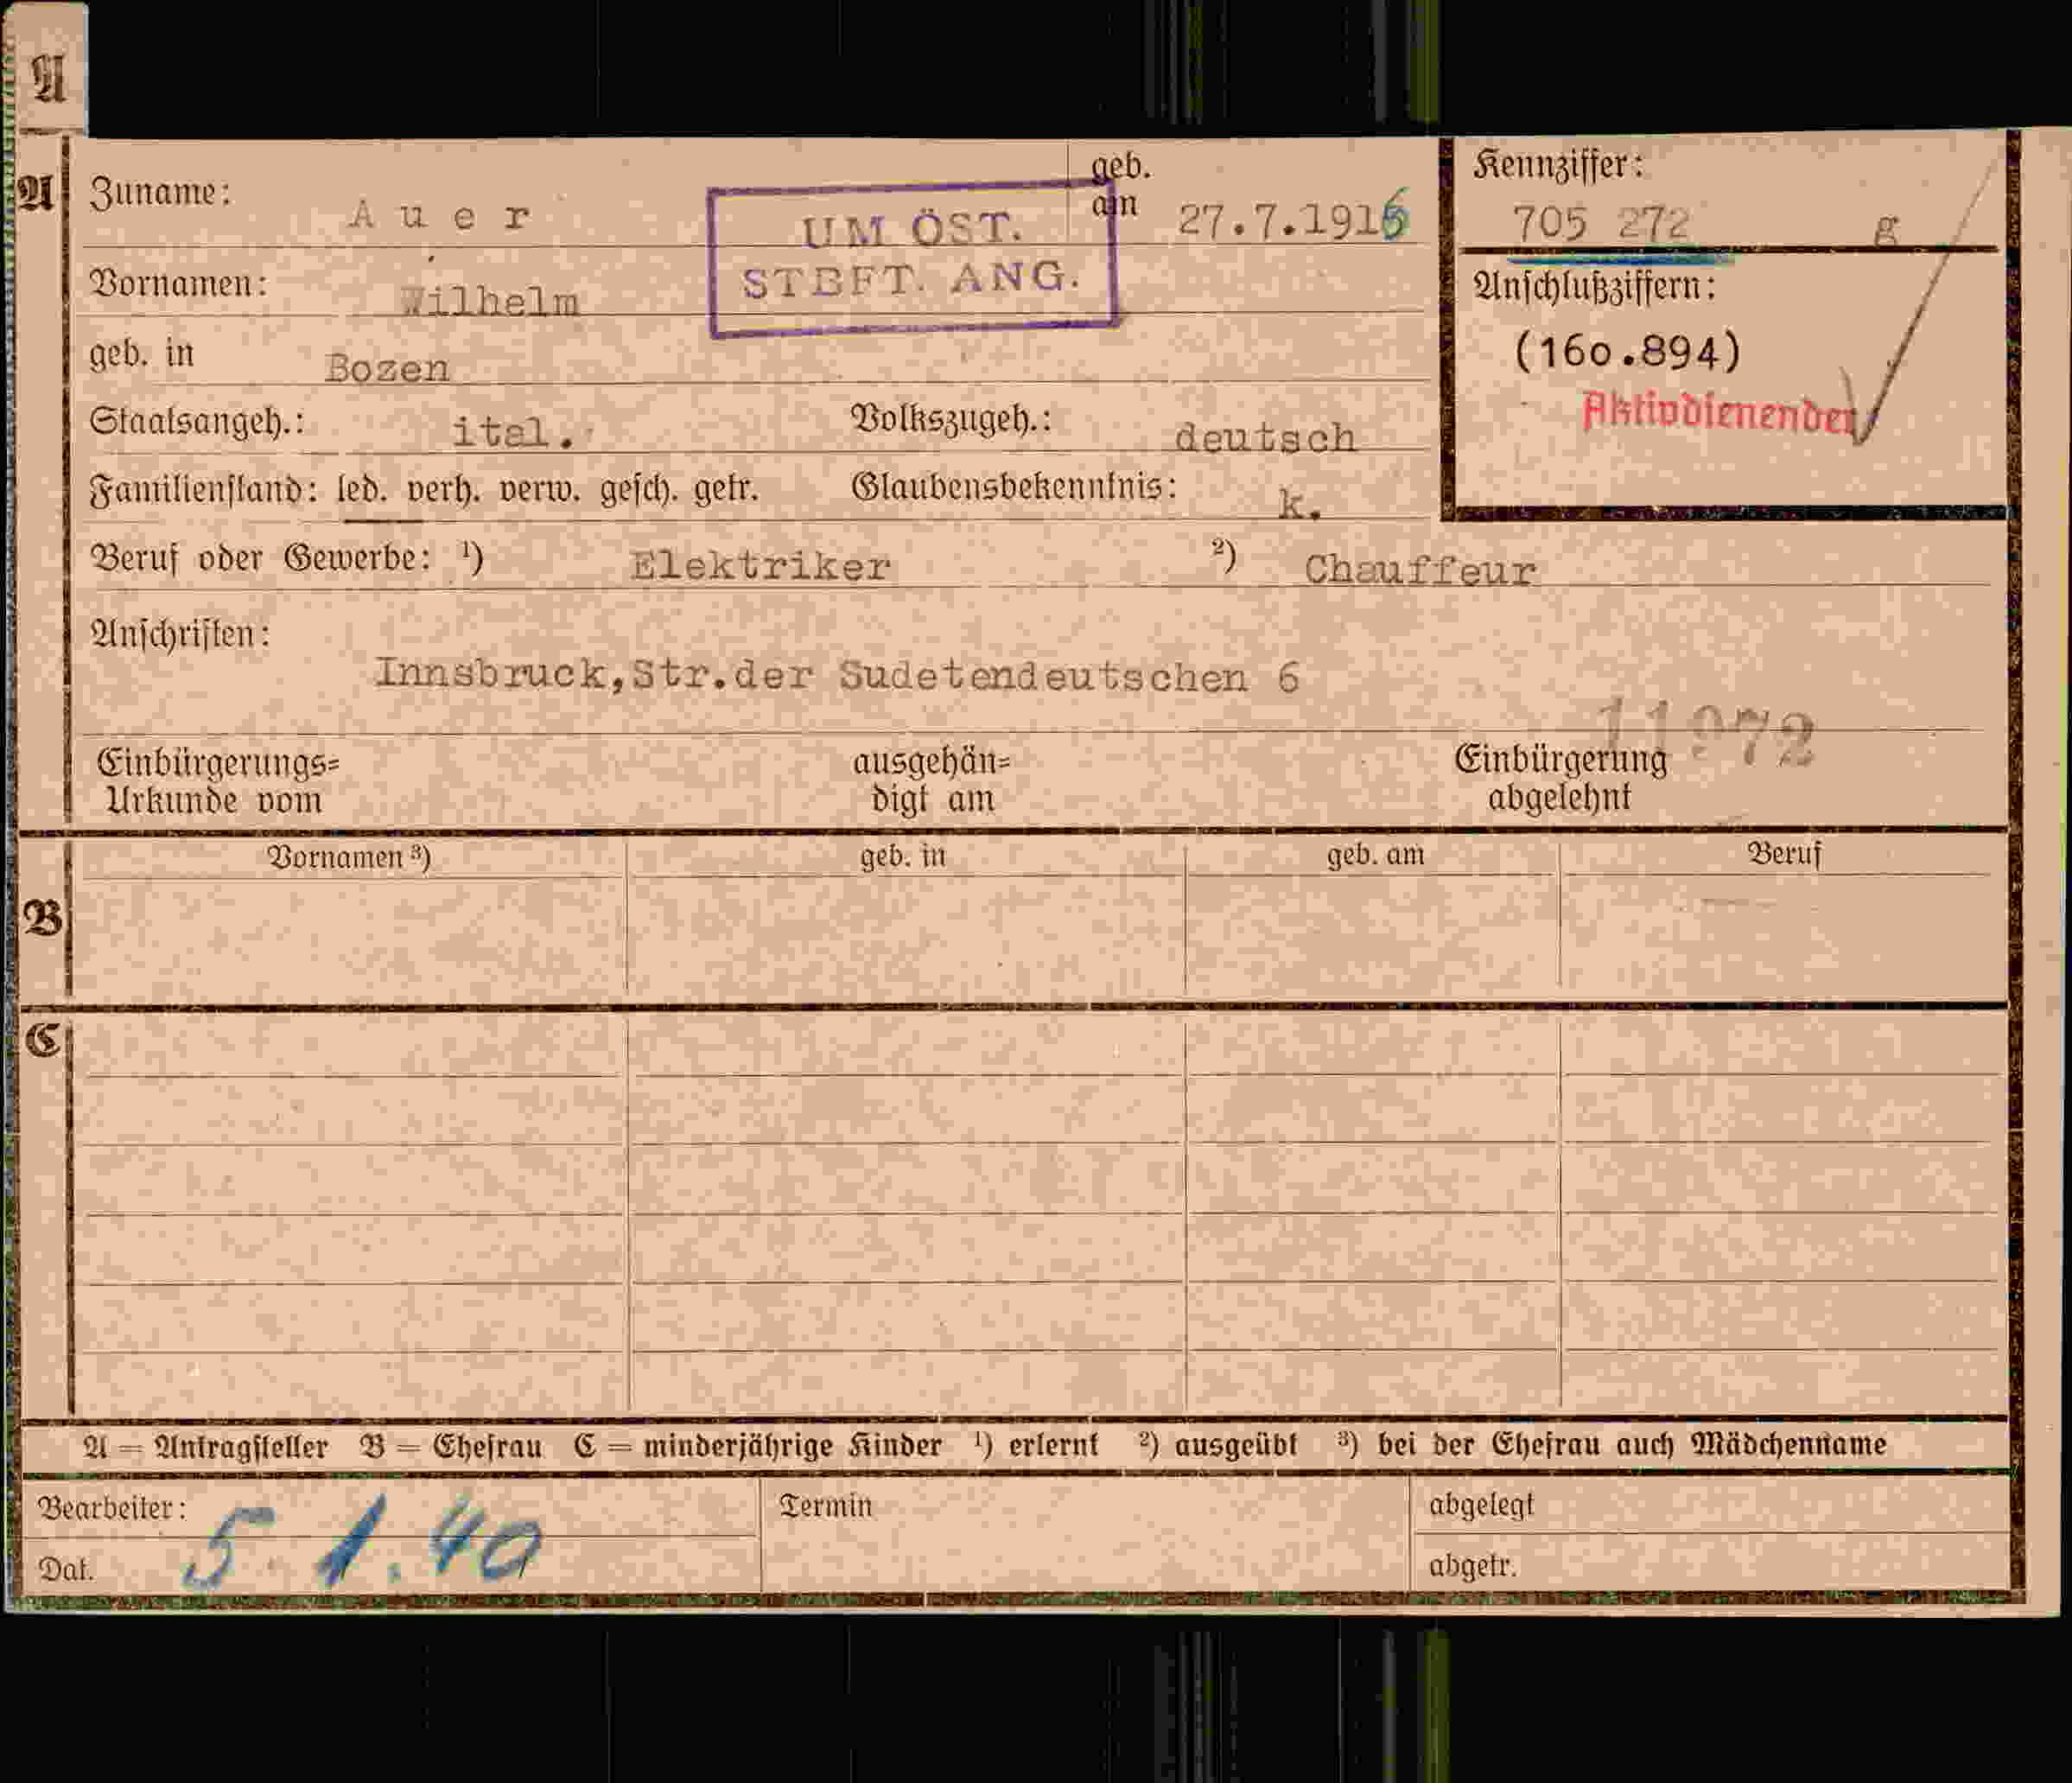 A
A
Zuname: Auer
UM ÖST.
STBFT. ANG.
geb. am 27.7.1916
Kennziffer:
705 272 g
Vornamen: Wilhelm
Anschlußziffern:
(160.894)
Aktivdienender
geb. in Bozen
Staatsangeh.: ital. Volkszugeh.: deutsch
Familienstand: led. verh. verw. gesch. getr. Glaubensbekenntnis: k.
Beruf oder Gewerbe: ¹) Elektriker ²) Chauffeur
Anschriften:
Innsbruck,Str.der Sudetendeutschen 6
11972
Einbürgerungs=
Urkunde vom
ausgehän=
digt am
Einbürgerung
abgelehnt
B
Vornamen ³) geb. in geb. am Beruf
C
A = Antragsteller B = Ehefrau C = minderjährige Kinder ¹) erlernt ²) ausgeübt ³) bei der Ehefrau auch Mädchenname
Bearbeiter: Termin abgelegt
Dat. 5.1.40 abgetr.